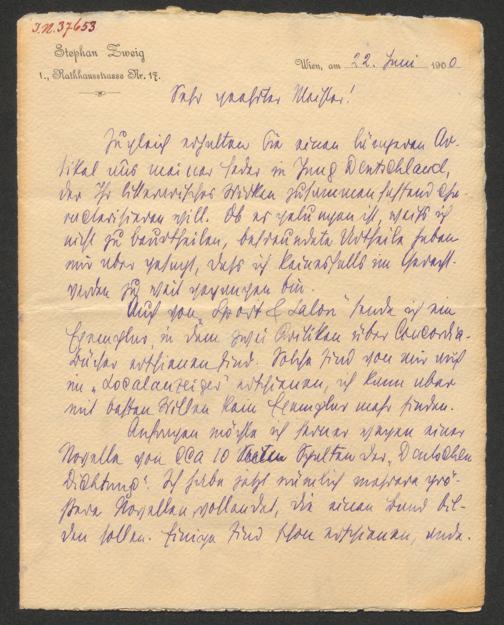 I.N. 37653
Stephan Zweig
1., Rathhausstrasse Nr. 17.
Wien, am 22. Juni 1900
Sehr geehrter Meister!
Zugleich erhalten Sie einen längeren Ar-
tikel aus meiner Feder in Jung Deutschland,
der Ihr litterarisches Wirken zusammenfassend cha-
racterisieren will. Ob es gelungen ist, weiß ich
nicht zu beurtheilen, befreundete Urtheile haben
mir aber gesagt, daß ich keinesfalls im Gerecht-
werden zu weit gegangen bin.
Auch von „Sport & Salon" sende ich ein
Exemplar, in dem zwei Kritiken über Concordia-
bücher erschienen sind. Solche sind von mir auch
im „Localanzeiger" erschienen, ich kann aber
mit besten Willen kein Exemplar mehr finden.
Anfragen möchte ich ferner wegen einer
Novelle von cca 10 Spalten der „Deutschen
Dichtung". Ich habe jetzt nämlich mehrere grö-
ßere Novellen vollendet, die einen Band bil-
den sollen. Einige sind schon erschienen, ande-